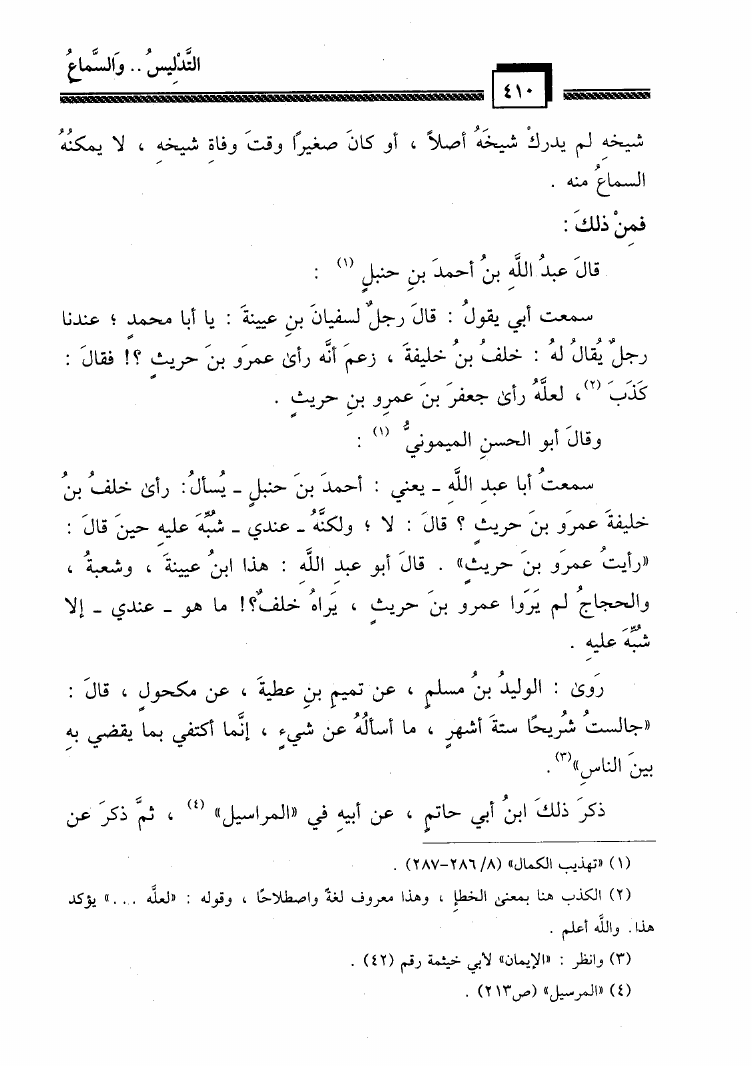 التَّدْلِيسُ .. وَالسَّمَاعُ
٤١٠
شيخهِ لم يدركْ شيخَهُ أصلاً ، أو كانَ صغيرًا وقتَ وفاةِ شيخهِ ، لا يمكنُهُ
السماعُ منه .
فمِنْ ذلكَ :
قالَ عبدُ اللَّهِ بنُ أحمدَ بنِ حنبلٍ (١) :
سمعت أبي يقولُ : قالَ رجلٌ لسفيانَ بنِ عيينةَ : يا أبا محمدٍ ؛ عندنا
رجلٌ يُقالُ لهُ : خلفُ بنُ خليفةَ ، زعمَ أنَّه رأىٰ عمرَو بنَ حريثٍ ؟! فقالَ :
كَذَبَ (٢)، لعلَّهُ رأىٰ جعفرَ بنَ عمرِو بنِ حريثٍ .
وقالَ أبو الحسنِ الميمونيُّ (١) :
سمعتُ أبا عبدِ اللَّهِ ـ يعني : أحمدَ بنَ حنبلٍ ـ يُسألُ: رأىٰ خلفُ بنُ
خليفةَ عمرَو بنَ حريثٍ ؟ قالَ : لا ؛ ولكنَّهُ ـ عندي ـ شُبِّهَ عليهِ حينَ قالَ :
«رأيتُ عمرَو بنَ حريثٍ» . قالَ أبو عبدِ اللَّهِ : هذا ابنُ عيينةَ ، وشعبةُ ،
والحجاجُ لم يَرَوا عمرو بنَ حريثٍ ، يَراهُ خلفٌ؟! ما هو ـ عندي ـ إلا
شُبِّهَ عليهِ .
رَوىٰ : الوليدُ بنُ مسلمٍ ، عن تميمِ بنِ عطيةَ ، عن مكحولٍ ، قالَ :
«جالستُ شُريحًا ستةَ أشهرٍ ، ما أسألُهُ عن شيءٍ ، إنَّما أكتفي بما يقضي بهِ
بينَ الناسِ»(٣).
ذكرَ ذلكَ ابنُ أبي حاتمٍ ، عن أبيهِ في «المراسيل» (٤) ، ثمَّ ذكرَ عن
(١) «تهذيب الكمال» (٨/ ٢٨٦-٢٨٧) .
(٢) الكذب هنا بمعنىٰ الخطإِ ، وهذا معروف لغةً واصطلاحًا ، وقوله : «لعلَّه ...» يؤكد
هذا. واللَّه أعلم .
(٣) وانظر : «الإيمان» لأبي خيثمة رقم (٤٢) .
(٤) «المرسيل» (ص٢١٣) .